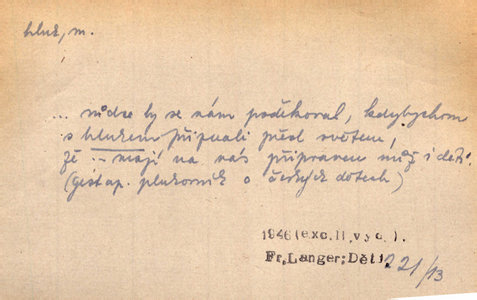 hluk, m.
... vůdce by se nám poděkoval, kdybychom
s hlukem připustili před světem,
že ... mají na nás připraven nůž i děti.
(gestap. plukovník o českých dětech)
1946 (exc. II, vyd.).
Fr. Langer: Děti. 221/13